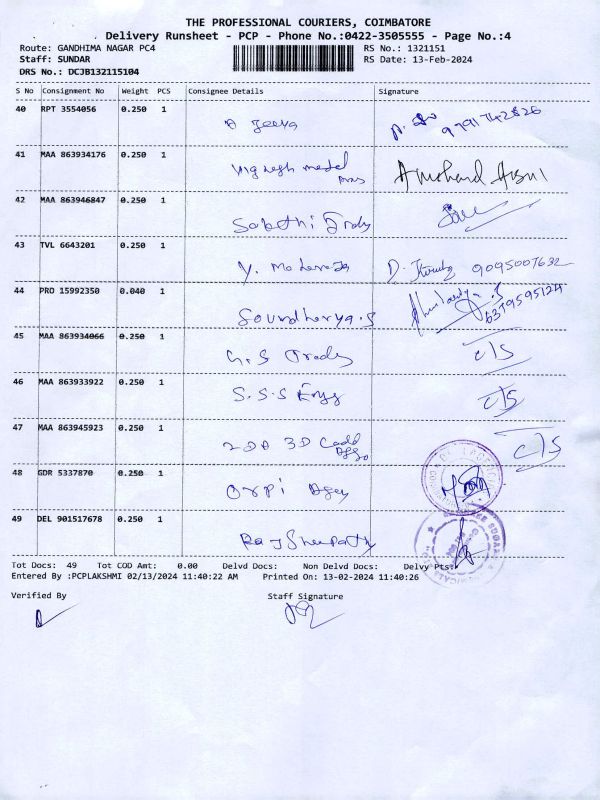 THE PROFESSIONAL COURIERS, COIMBATORE
Delivery Runsheet - PCP - Phone No.:0422-3505555 - Page No.:4
Route: GANDHIMA NAGAR PC4 RS No.: 1321151
Staff: SUNDAR RS Date: 13-Feb-2024
DRS No.: DCJB132115104
S No Consignment No Weight PCS Consignee Details Signature
40 RPT 3554056 0.250 1 A Jeeva 9791742826
41 MAA 863934176 0.250 1
42 MAA 863946847 0.250 1
43 TVL 6643201 0.250 1 9095007632
44 PRO 15992350 0.040 1 Soundharya.S 6379595124
45 MAA 863934066 0.250 1 G.S Trades c/s
46 MAA 863933922 0.250 1 S.S.S Engg c/s
47 MAA 863945923 0.250 1 3D Cadd c/s
48 GDR 5337870 0.250 1
49 DEL 901517678 0.250 1
Tot Docs: 49 Tot COD Amt: 0.00 Delvd Docs: Non Delvd Docs: Delvy Pts:
Entered By :PCPLAKSHMI 02/13/2024 11:40:22 AM Printed On: 13-02-2024 11:40:26
Verified By Staff Signature